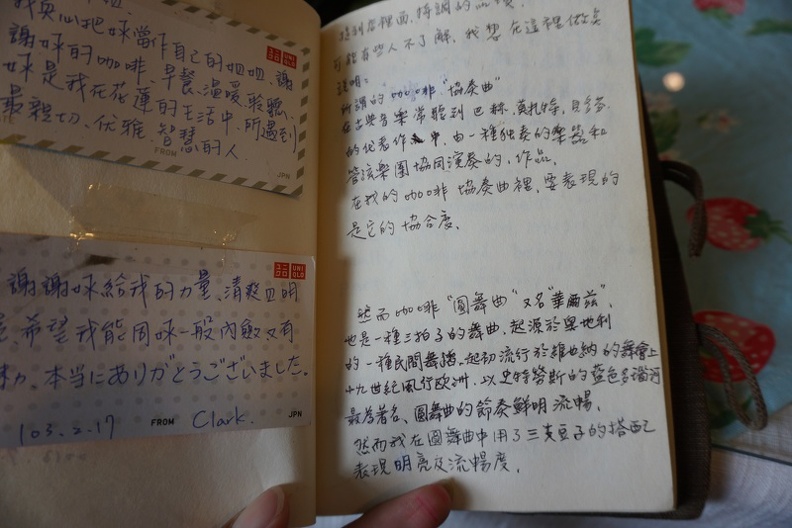 我真心把妳當作自己的姐姐、謝
謝妳的咖啡、早餐、溫暖、聆聽、
妳是我在花蓮的生活中,所遇到
最親切、優雅、智慧的人
FROM
JPN
UNIQLO
謝謝妳給我的力量、清爽四明
希望我能同妳一般內斂又有
本当にありがとうございました。
103.2.17 FROM Clark. JPN
特調的
可能有些人不了解,我想在這裡做点
說明:
所謂的"咖啡"協奏曲"
在古典音樂常聽到巴赫.莫札特.貝多芬
的代表作中,由一種獨奏的樂器和
管弦樂團協同演奏的,作品,
在我的咖啡協奏曲裡,要表現的
是它的協合度,
然而咖啡"圓舞曲"又名"華爾茲",
也是一種三拍子的舞曲,起源於奧地利
的一種民間舞蹈。起初流行於維也納的舞會上
十九世紀風行歐洲,以史特勞斯的藍色多瑙河
最為著名、圓舞曲的節奏鮮明流暢,
然而我在圓舞曲中用了三支豆子的搭配
表現明亮及流暢度,